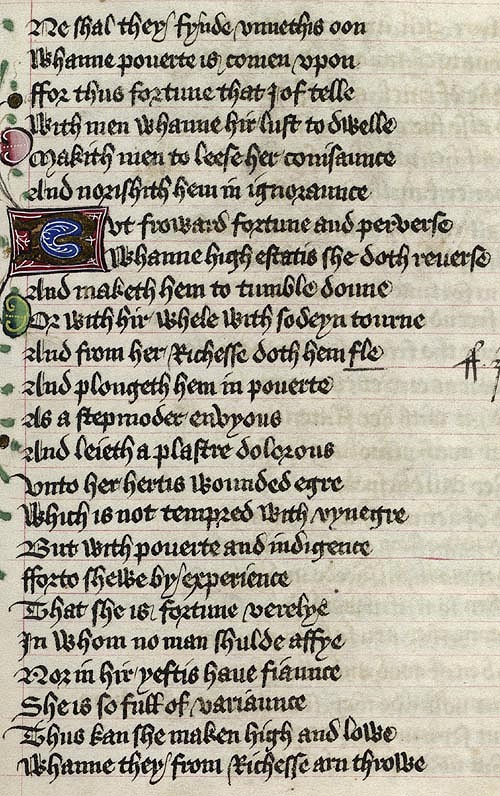 Ne shal they fynde vnnethis oon
Whanne pouerte is comen vpon
ffor thus fortune that I of telle
With men whanne hir lust to dwelle
Makith men to leese her conisaunce
And norishith hem in ignoraunce
But froward fortune and perverse
Whanne high estatis she doth reuerse
And maketh hem to tumble doune
Or with hir whele with sodeyn tourne
And from her Richesse doth hem fle
And plongeth hem in pouerte
As a stepmoder envyous
And leieth a plastre dolorous
Vnto her hertis wounded egre
Which is not tempred with vynegre
But with pouerte and indigence
fforto shewe by experience
That she is fortune verelye
In whom no man shulde affye
Nor in hir yeftis haue fiaunce
She is so full of variaunce
Thus kan she maken high and lowe
Whanne they from Richesse arn throwe